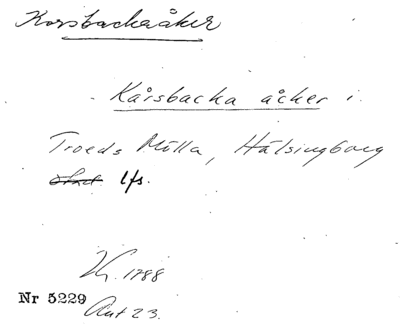 Korsbackaåker
Kårsbacka åcker i
Troeds Mölla, Hälsingborg
lfs.
1788
Nr 5229
Akt 23.